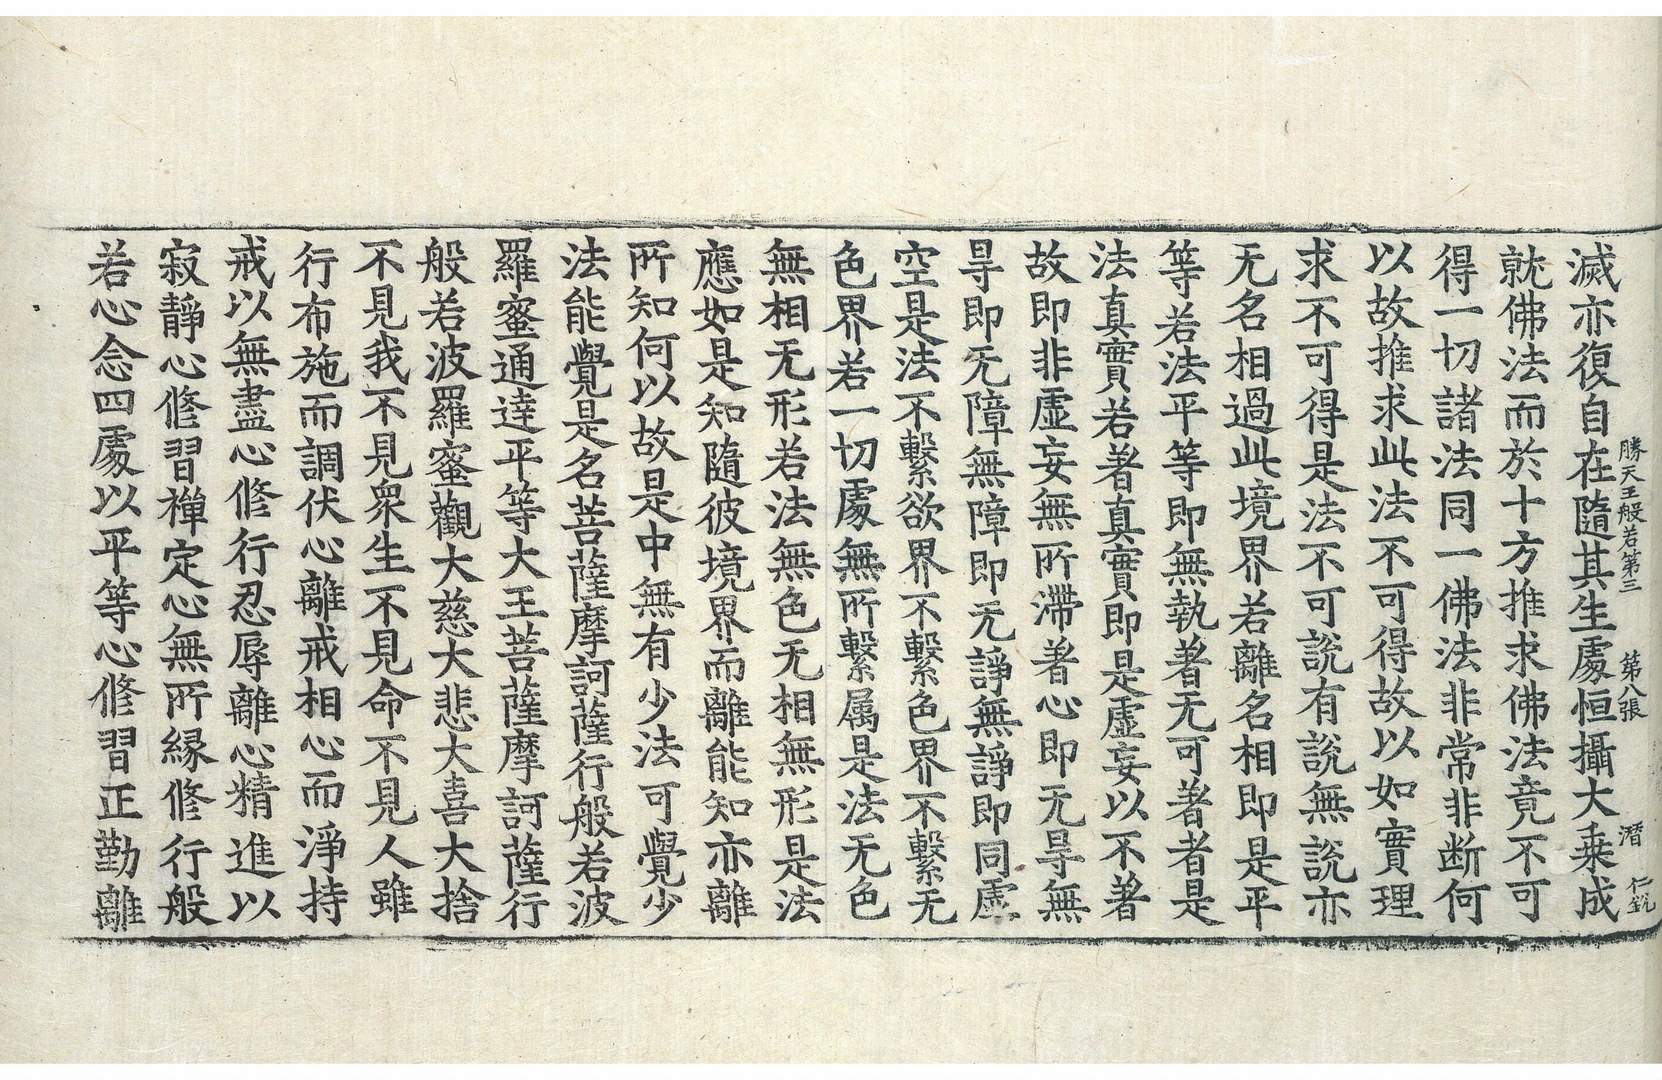 勝天王般若第三 第八張 潛 仁銳
滅亦復自在隨其生處恒攝大乗成
就佛法而於十方推求佛法竟不可
得一切諸法同一佛法非常非断何
以故推求此法不可得故以如實理
求不可得是法不可說有說無說亦
无名相過此境界若離名相即是平
等若法平等即無執著无可著者是
法真實若著真實即是虛妄以不著
故即非虛妄無所滯著心即无㝵無
㝵即无障無障即无諍無諍即同虛
空是法不繫欲界不繫色界不繫无
色界若一切處無所繫属是法无色
無相无形若法無色无相無形是法
應如是知隨彼境界而離能知亦離
所知何以故是中無有少法可覺少
法能覺是名菩薩摩訶薩行般若波
羅蜜通達平等大王菩薩摩訶薩行
般若波羅蜜觀大慈大悲大喜大捨
不見我不見衆生不見命不見人雖
行布施而調伏心離戒相心而淨持
戒以無盡心修行忍辱離心精進以
寂靜心修習禪定心無所縁修行般
若心念四處以平等心修習正勤離